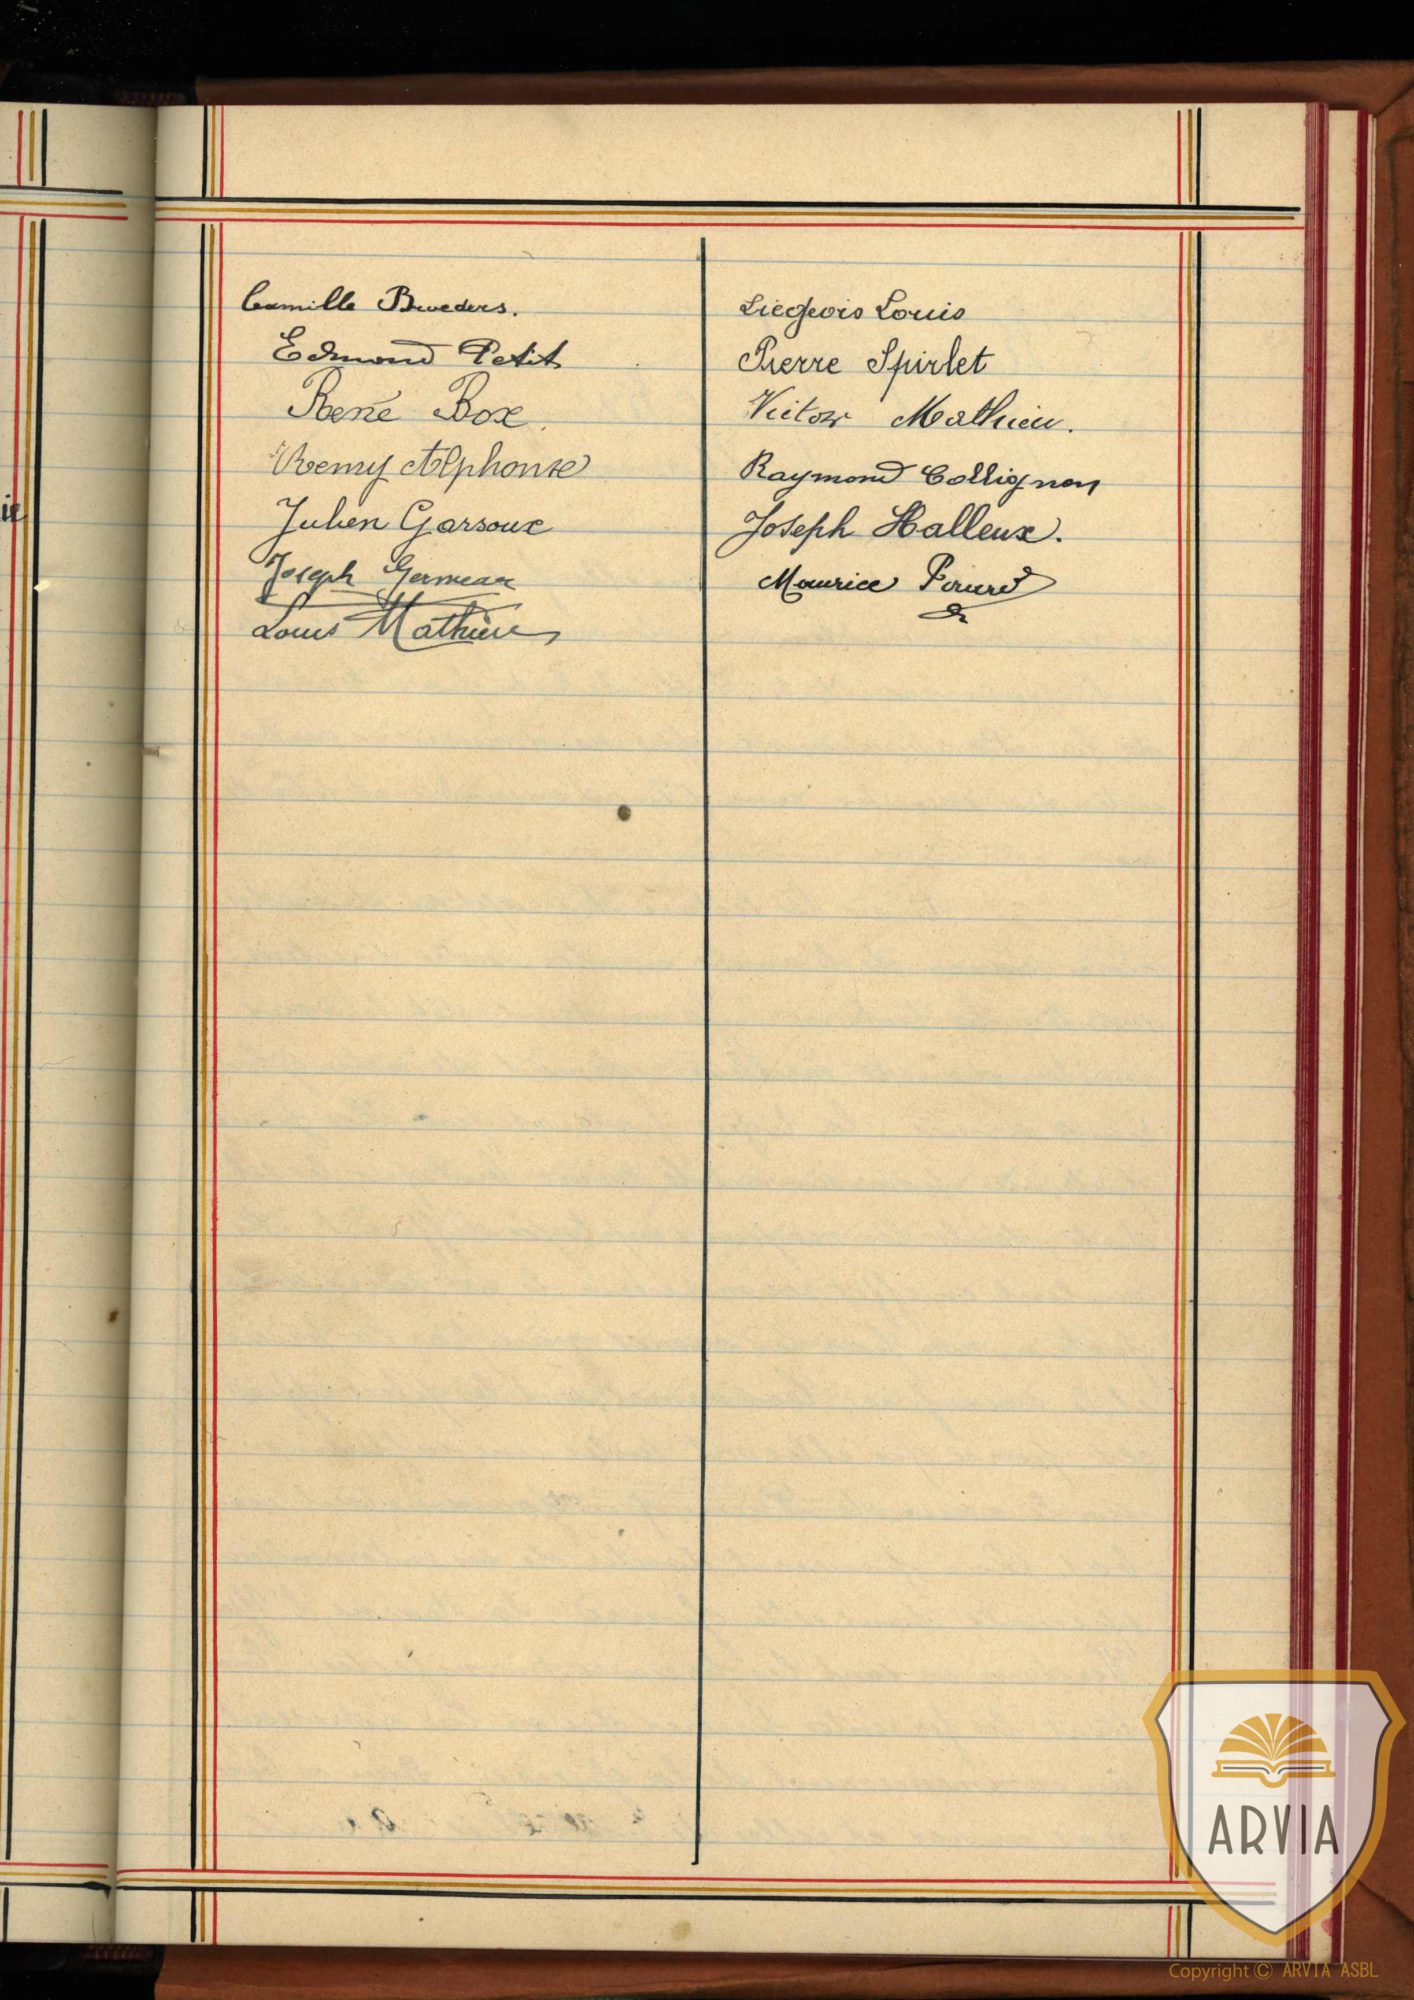 Camille Broeders.
Edmond Petit
René Box.
Remy Alphonse
Julien Garsoux
Joseph Germeau
Louis Mathieu
Liégeois Louis
Pierre Spirlet
Victor Mathieu.
Raymond Collignon
Joseph Halleux.
Maurice
ARVIA
Copyright © ARVIA ASBL